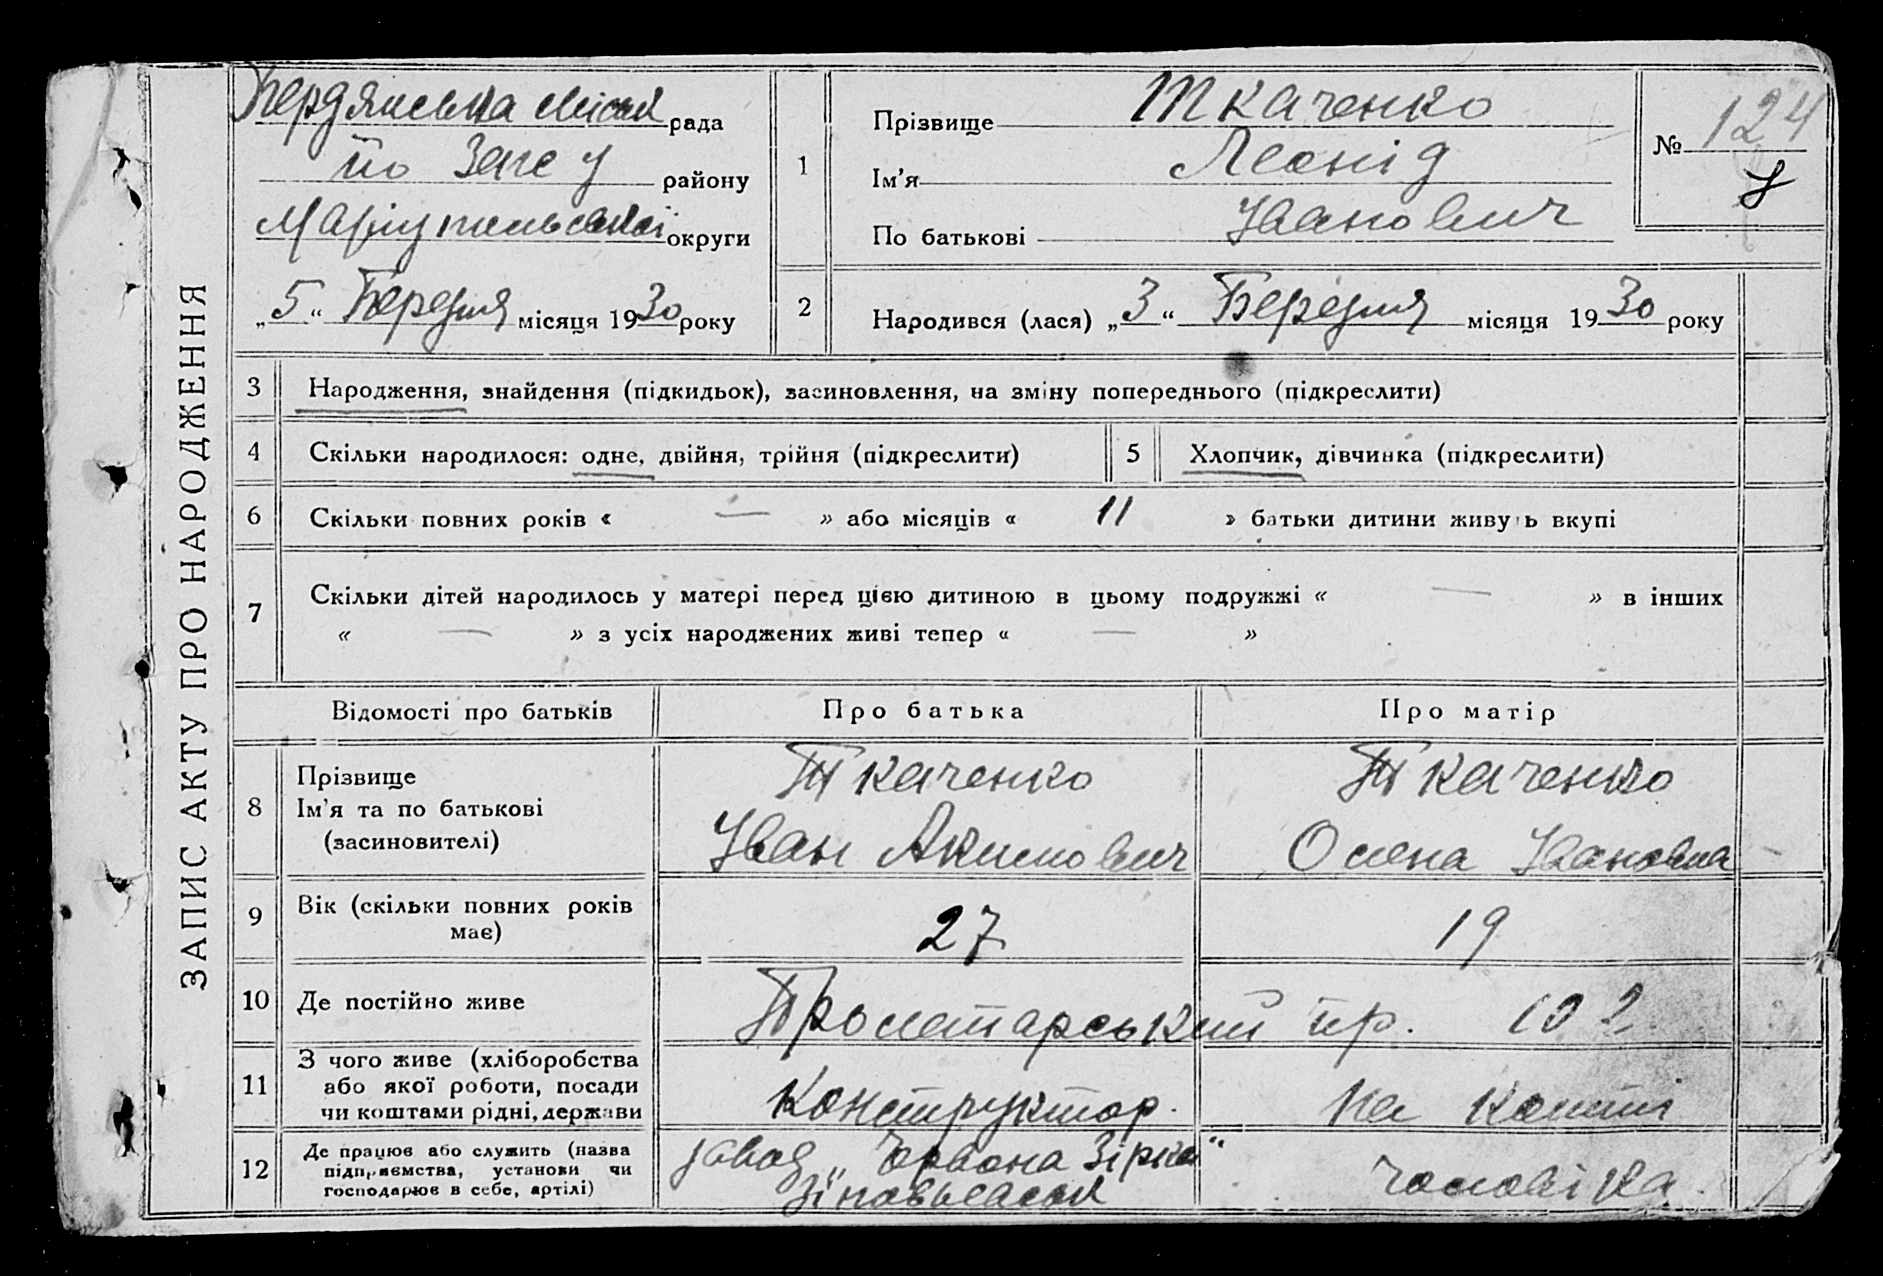 ЗАПИС АКТУ ПРО НАРОДЖЕННЯ
Бердянська міськ рада
по Загс у району
Маріупільської округи
„5“ Березня місяця 1930 року
1
Прізвище Ткаченко
Ім'я Леонід
По батькові Іванович
№ 124
2 Народився (лася) „3“ Березня місяця 1930 року
3 Народження, знайдення (підкидьок), засиновлення, на зміну попереднього (підкреслити)
4 Скільки народилося: одне, двійня, трійня (підкреслити) 5 Хлопчик, дівчинка (підкреслити)
6 Скільки повних років « — » або місяців « 11 » батьки дитини живуть вкупі
7 Скільки дітей народилось у матері перед цією дитиною в цьому подружжі « — » в інших
« — » з усіх народжених живі тепер « — »
Відомості про батьків Про батька Про матір
8 Прізвище
Ім'я та по батькові
(засиновителі)
Ткаченко
Іван Акимович
Ткаченко
Олена Івановна
9 Вік (скільки повних років
має)
27 19
10 Де постійно живе Пролетарський пр. 102
11 З чого живе (хліборобства
або якої роботи, посади
чи коштами рідні, держави
Конструктор. на кошті
12 Де працює або служить (назва
підприємства, установи чи
господарює в себе, артілі)
завод „Червона Зірка“
чоловіка.